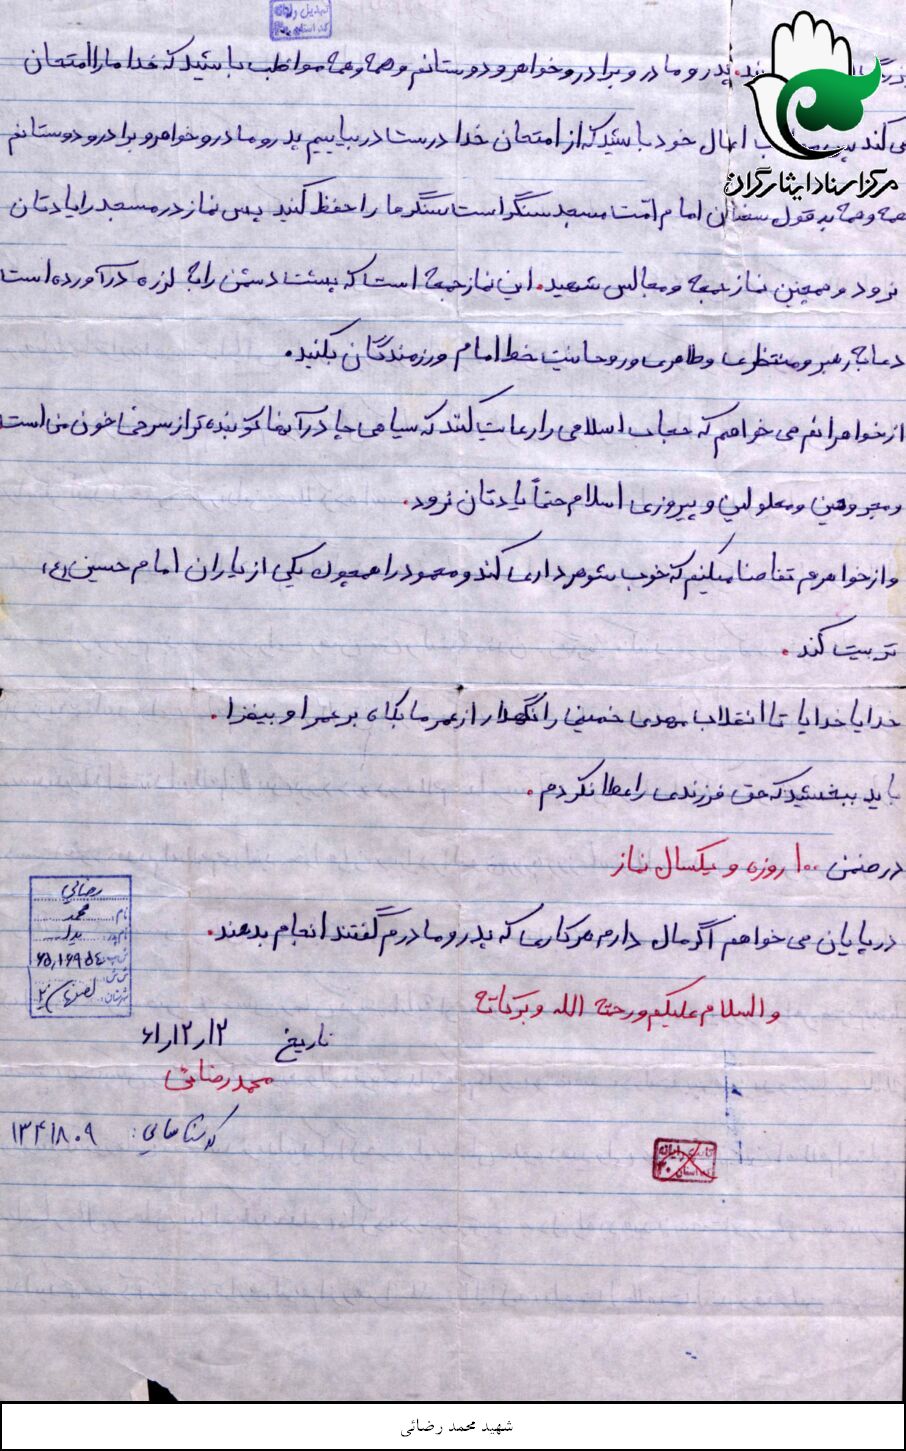 پدر و مادر و برادر و خواهر و دوستانم و همه و همه مواظب باشید که خدا ما را امتحان
می کند پس مواظب اعمال خود باشید که از امتحان خدا درست در بیاییم پدر و مادر و خواهر و برادر و دوستانم
همه و همه به قول سخنان امام امت مسجد سنگر است سنگرها را حفظ کنید پس نماز در مسجد را یادتان
نرود و همچنین نماز جمعه و مجالس شهید. این نماز جمعه است که پشت دشمن را به لرزه در آورده است
دعا به رهبر و منتظری و طاهری و روحانیت خط امام و رزمندگان بکنید.
از خواهرانم می خواهم که حجاب اسلامی را رعایت کنند که سیاهی چادر آنها کوبنده تر از سرخی خون من است
و مجروحین و معلولین و پیروزی اسلام حتماً یادتان نرود.
و از خواهرم تقاضا میکنم که خوب شوهرداری کند و محمود را همچون یکی از یاران امام حسین (ع)
تربیت کند.
خدایا خدایا تا انقلاب مهدی خمینی را نگهدار از عمر ما بکاه بر عمر او بیفزا.
باید ببخشید که حق فرزندی را عطا نکردم.
در ضمن ۱۰۰ روزه و یکسال نماز
در پایان می خواهم اگر مال دارم هر کاری که پدر و مادرم گفتند انجام بدهند.
والسلام علیکم و رحمته الله و برکاته
تاریخ ۶۱/۱۲/۱۲
محمد رضائی
کد شناسایی: ۱۳۴۱۸۰۹
رضائی
نام: محمد
نام پدر:
شهرستان:
مرکز اسناد ایثارگران
شهید محمد رضائی